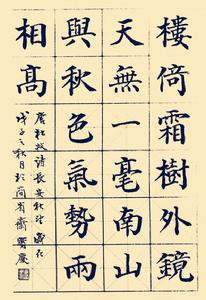 樓倚霜樹外鏡
天無一毫南山
與秋色氣勢兩
相髙
唐杜牧詩長安秋望 歲在
戊子之秋月於齋